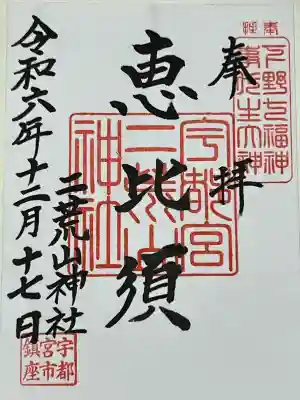 奉拝
恵比須
二荒山神社
令和六年十二月十七日
下野七福神
宇都宮
二荒山
神社
宇都
宮市
鎮座